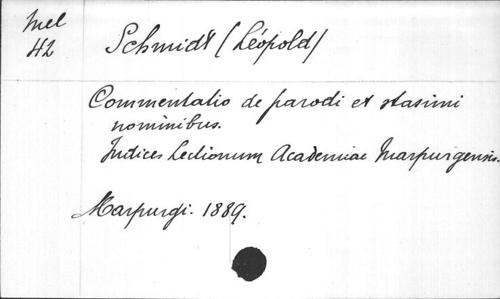 Mel
42
Schmidt (Léopold)
Commentatio de parodi et stasimi
nominibus.
Indices Lectionum Academiae Marpurgensis.
Marpurgi. 1889.